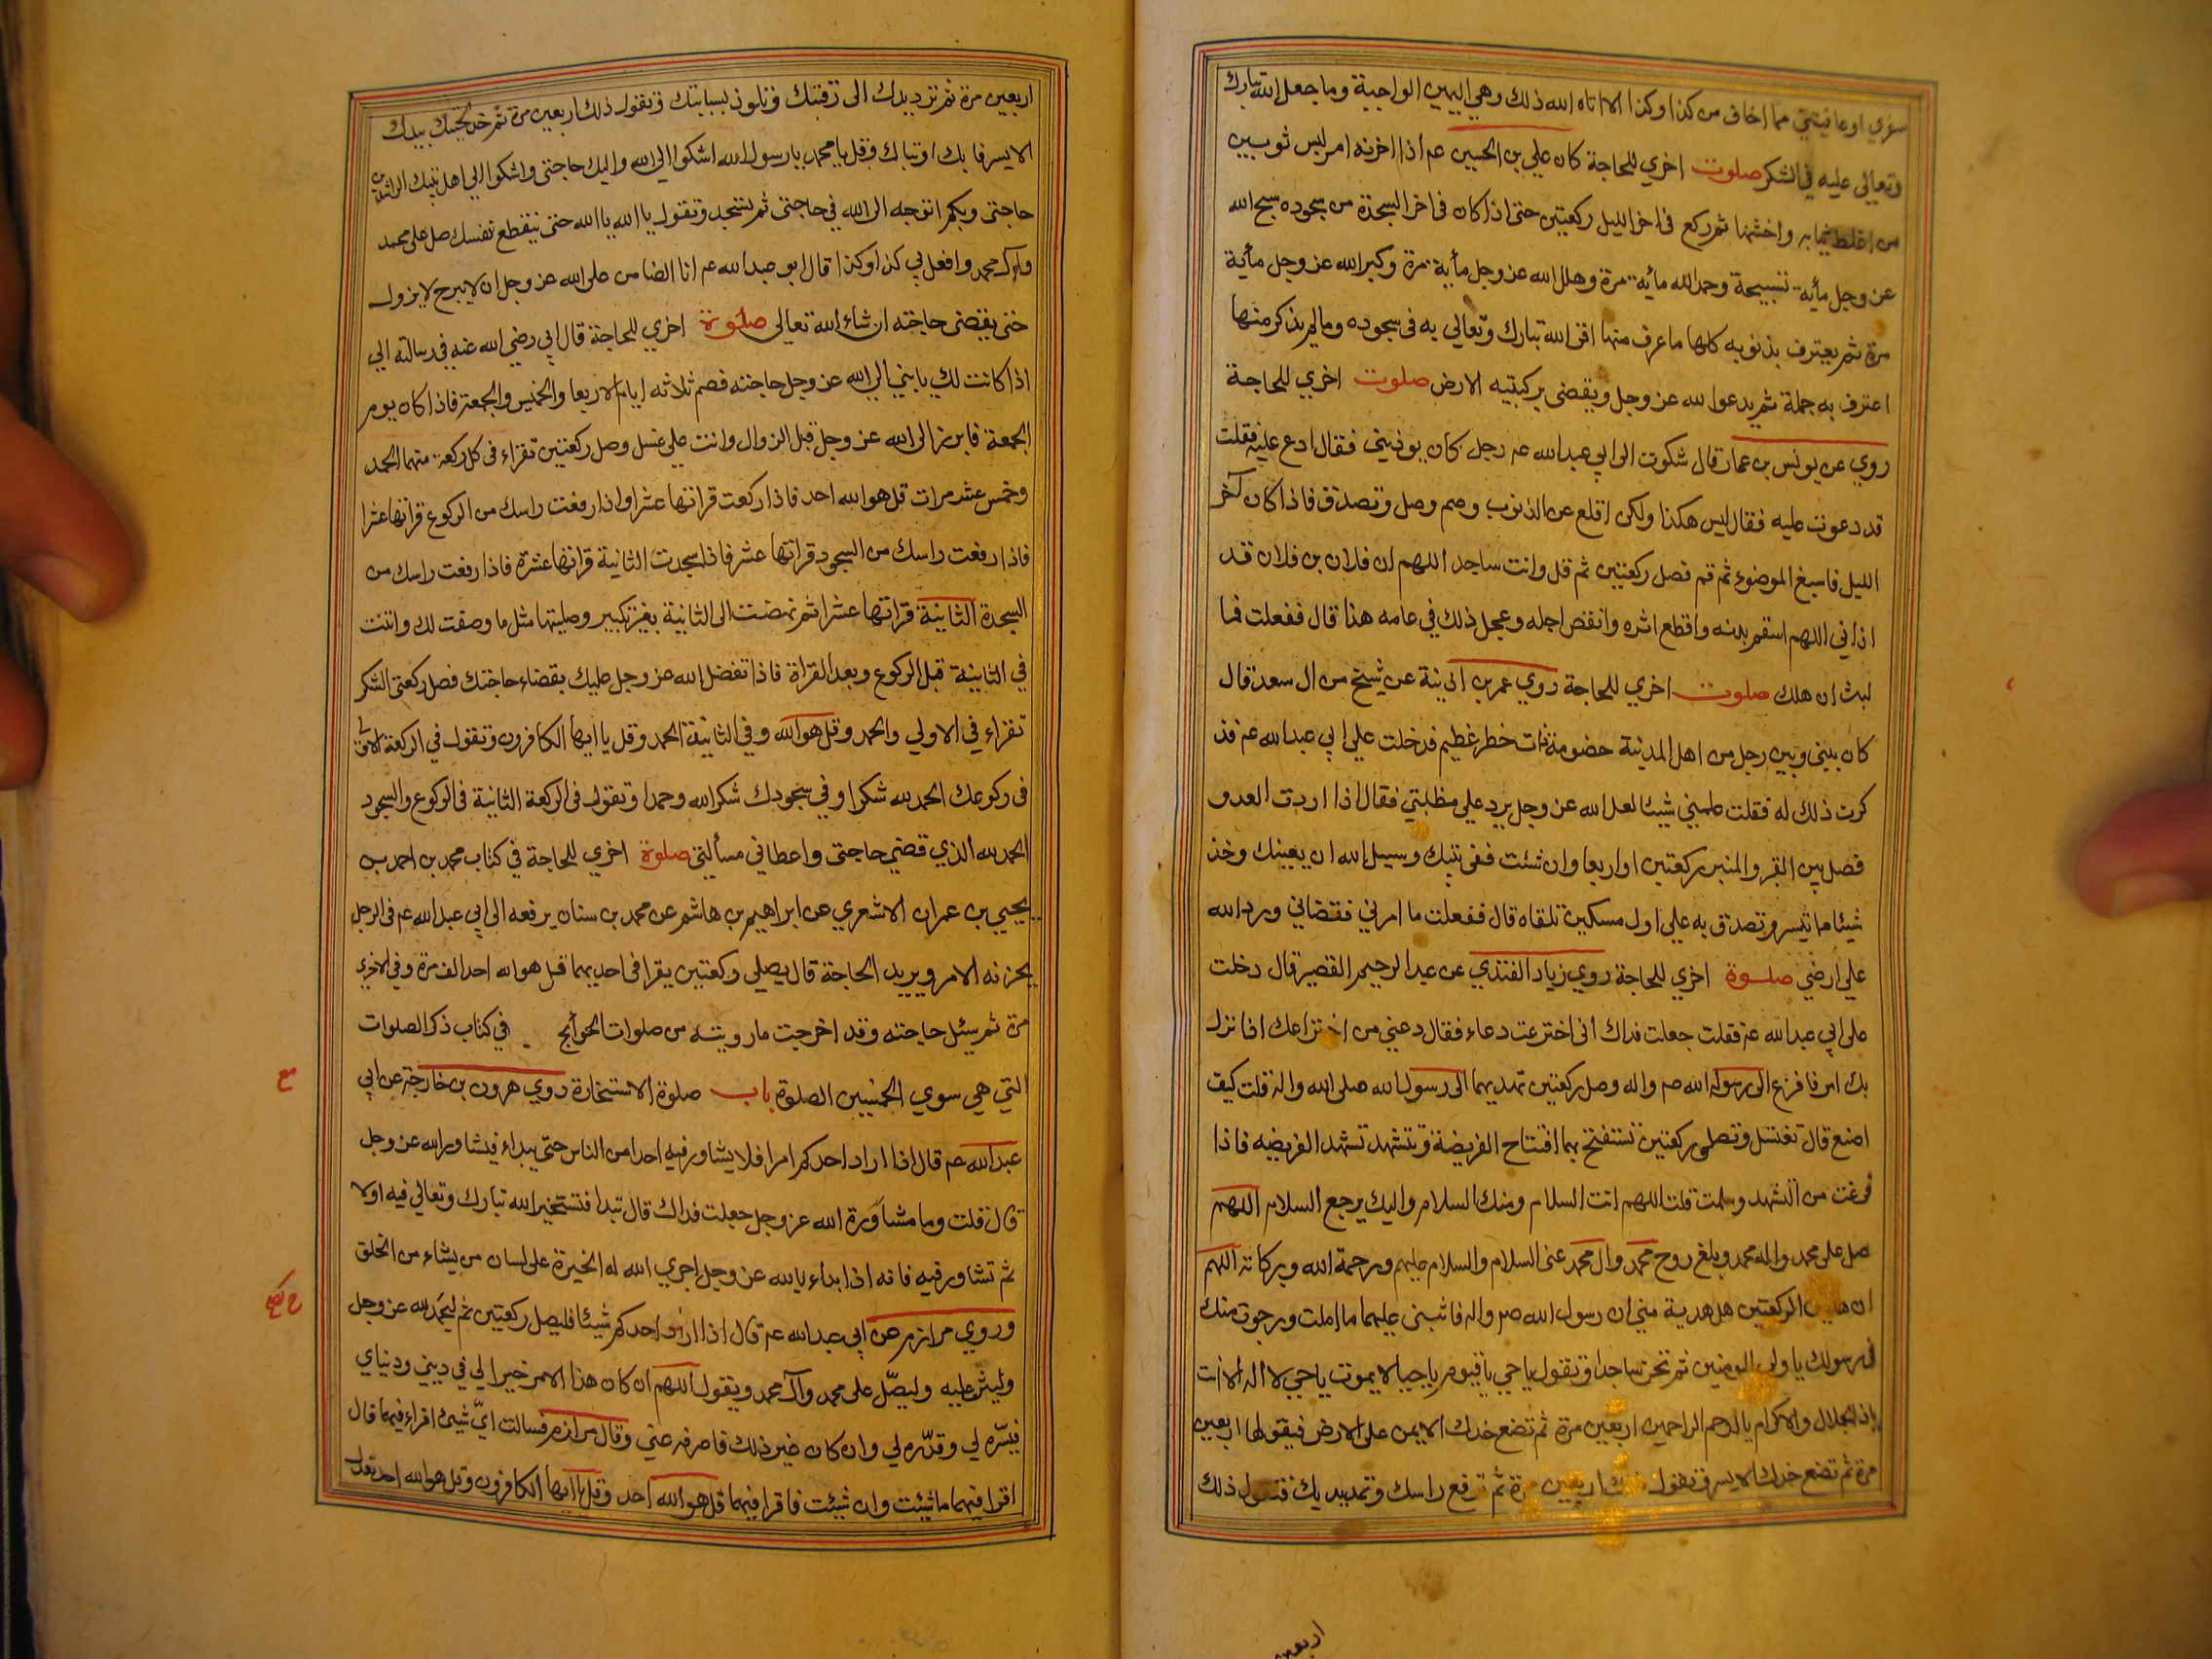 سفري او عافيتني مما اخاف من كذا وكذا الا اتاه الله ذلك وهي اليمين الواجبة وما جعل الله تبارك
وتعالى عليه في الشكر صلوت اخري للحاجة كان علي بن الحسين عم اذا احزنه امر لبس ثوبين
من اغلظ ثيابه واخشنها ثم ركع في اخر الليل ركعتين حتى اذا كان في اخر السجدة من سجوده سبح الله
عز وجل مأية تسبيحة وحمد الله مأية مرة وهلل الله عز وجل مأية مرة وكبر الله عز وجل مأية
مرة ثم يعترف بذنوبه كلها ما عرف منها اقر الله تبارك وتعالى به في سجوده وما لم يذكر منها
اعترف به جملة ثم يدعو الله عز وجل ويفضي بركبتيه الارض صلوت اخري للحاجة
روي عن يونس بن عمار قال شكوت الى ابي عبد الله عم رجل كان يوذيني فقال ادع عليه فقلت
قد دعوت عليه فقال ليس هكذا ولكن اقلع عن الذنوب وصم وصل وتصدق فاذا كان آخر
الليل فاسبغ الموضوء ثم قم فصل ركعتين ثم قل وانت ساجد اللهم ان فلان بن فلان قد
اذاني اللهم اسقم بدنه واقطع اثره وانقص اجله وعجل ذلك في عامه هذا قال ففعلت فما
لبث ان هلك صلوت اخري للحاجة روي عمر بن اذينة عن شيخ من ال سعد قال
كان بيني وبين رجل من اهل المدينة خصومة ذات خطر عظيم فدخلت علي ابي عبد الله عم فذ
كرت ذلك له فقلت علمني شيئا لعل الله عز وجل يرد علي مظلمتي فقال اذا اردت العدو
فصل بين القبر والمنبر ركعتين او اربعا وان شئت ففي بيتك وسيل الله ان يعينك وخذ
شيئا ما تيسر وتصدق به علي اول مسكين تلقاه قال ففعلت ما امرني فقضاني ورد الله
علي ارضي صلوة اخري للحاجة روي زياد القندي عن عبد الرحيم القصير قال دخلت
على ابي عبد الله عم فقلت جعلت فداك اني اخترعت دعاء فقال دعني من اختراعك اذا نزل
بك امر فافزع الى رسول الله صم واله وصل ركعتين تهديهما الى رسول الله صلى الله واله قلت كيف
اصنع قال تغتسل وتصلي ركعتين تستفتح بهما افتتاح الفريضة وتتشهد تشهد الفريضه فاذا
فرغت من التشهد وسلمت قلت اللهم انت السلام ومنك السلام واليك يرجع السلام اللهم
صل على محمد واله محمد وبلغ روح محمد وال محمد عني السلام والسلام عليهم ورحمة الله وبركاته اللهم
ان هاتين الركعتين هل هدية مني ان رسول الله صم واله فاثبني عليهما ما املت ورجوت منك
في رسولك يا ولي المومنين ثم تخر ساجدا وتقول يا حي يا قيوم يا حيا لا يموت يا حي لا اله الا انت
يا ذا الجلال والاكرام يا ارحم الراحمين اربعين مرة ثم تضع خدك الايمن على الارض فيقولها اربعين
مرة ثم تضع خدك الايسر فتقول ذلك اربعين مرة ثم ترفع راسك وتمد يديك فتقول ذلك
اربعين
اربعين مرة ثم ترد يدك الى رقبتك وتلوذ بسبابتك وتقول ذلك اربعين مرة ثم خذ لحيتك بيدك
الايسر فابك او تباك وقل يا محمد يا رسول الله اشكوا الي الله واليك حاجتي واشكوا الي اهل بيتك الراشدين
حاجتي وبكم اتوجه الى الله في حاجتي ثم يسجد وتقول يا الله يا الله حتى ينقطع نفسك صل على محمد
وآل محمد وافعل بي كذا وكذا قال ابو عبد الله عم انا الضامن على الله عز وجل ان لا يبرح لا يزول
حتى يقضى حاجته ان شاء الله تعالى صلوة اخري للحاجة قال ابي رضي الله عنه في رسالته الي
اذا كانت لك يا بني الى الله عز وجل حاجته فصم ثلاثه ايام الاربعا والخميس والجمعة فاذا كان يوم
الجمعة فابرز الى الله عز وجل قبل الزوال وانت على غسل وصل ركعتين تقراء في كل ركعة منهما الحمد
وخمس عشر مرات قل هو الله احد فاذا ركعت قراتها عشرا واذا رفعت راسك من الركوع قراتها عشرا
فاذا رفعت راسك من السجود قراتها عشر فاذا سجدت الثانية قراتها عشرة فاذا رفعت راسك من
السجدة الثانية قراتها عشرا ثم نهضت الى الثانية بغير تكبير وصليتها مثل ما وصفت لك واقنت
في الثانية قبل الركوع وبعد القراة فاذا تفضل الله عز وجل عليك بقضاء حاجتك فصل ركعتي الشكر
تقراء في الاولي والحمد وقل هو الله وفي الثانية الحمد وقل يا ايها الكافرون وتقول في الركعة الاولى
في ركوعك الحمد لله شكرا وفي سجودك شكرا لله وحمدا وتقول في الركعة الثانية في الركوع والسجود
الحمد لله الذي قضى حاجتي واعطاني مسألتي صلوة اخري للحاجة في كتاب محمد بن احمد بن
يحيي بن عمران الاشعري عن ابراهيم بن هاشم عن محمد بن سنان يرفعه الى ابي عبد الله عم في الرجل
يحزنه الامر ويريد الحاجة قال يصلي ركعتين يقرا في احديهما قل هو الله احد الف مرة وفي الاخري
مرة ثم يسئل حاجته وقد اخرجت ما رويته من صلوات الحوائج في كتاب ذكر الصلوات
التي هي سوي الخمسين الصلوة باب صلوة الاستخارة روي هرون بن خارجة عن ابي
عبد الله عم قال اذا اراد احدكم امرا فلا يشاور فيه احدا من الناس حتى يبداء فيشاور الله عز وجل
قال قلت وما مشاورة الله عز وجل جعلت فداك قال تبدا فتستخير الله تبارك وتعالي فيه اولا
ثم تشاور فيه فانه اذا ابداء بالله عز وجل اجري الله له الخيرة على لسان من يشاء من الخلق
وروي مرازم عن ابي عبد الله عم قال اذا اراد احدكم شيئا فليصل ركعتين ثم ليحمد لله عز وجل
وليثن عليه وليصّل على محمد وآل محمد ويقول اللهم ان كان هذا الامر خيرا لي في ديني ودنياي
فيسّره لي وقدّره لي وان كان غير ذلك فاصرفه عني وقال مرازم فسالت ايّ شيئ اقراء فيهما قال
اقرا فيهما ما شئت وان شئت فاقرا فيهما قل هو الله احد وقل يا ايها الكافرون وقل هو الله احد تعدل